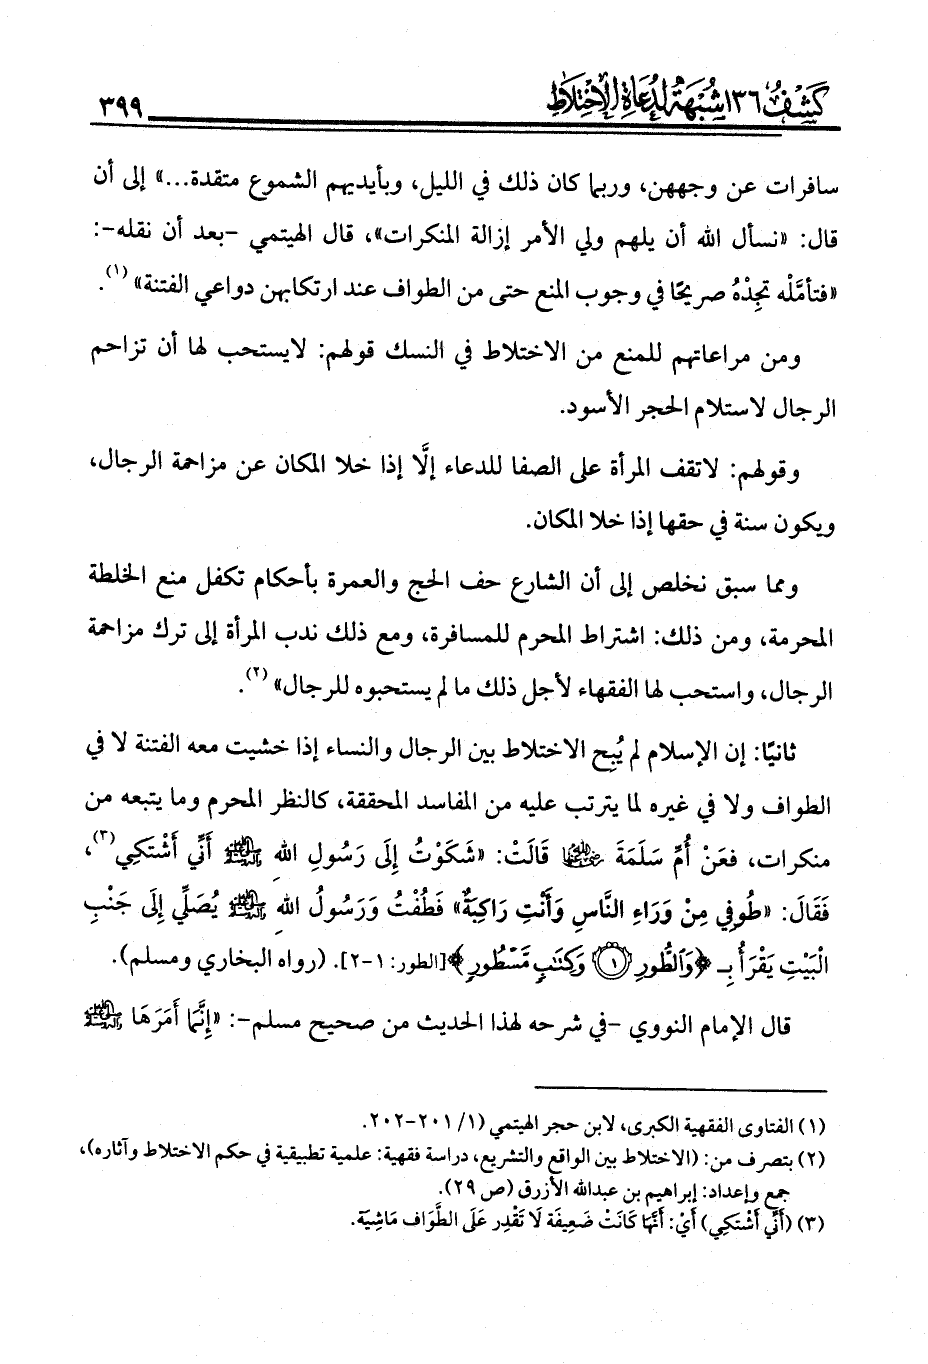 كَشْفُ ١٣٦ شُبْهَةً لِدُعَاةِ الِاخْتِلَاطِ ٣٩٩
سافرات عن وجههن، وربما كان ذلك في الليل، وبأيديهم الشموع متقدة...» إلى أن
قال: «نسأل الله أن يلهم ولي الأمر إزالة المنكرات»، قال الهيتمي -بعد أن نقله-:
«فتأمَّلْه تجِدْهُ صريحًا في وجوب المنع حتى من الطواف عند ارتكابهن دواعي الفتنة» (١).
ومن مراعاتهم للمنع من الاختلاط في النسك قولهم: لايستحب لها أن تزاحم
الرجال لاستلام الحجر الأسود.
وقولهم: لاتقف المرأة على الصفا للدعاء إلَّا إذا خلا المكان عن مزاحمة الرجال،
ويكون سنة في حقها إذا خلا المكان.
ومما سبق نخلص إلى أن الشارع حف الحج والعمرة بأحكام تكفل منع الخلطة
المحرمة، ومن ذلك: اشتراط المحرم للمسافرة، ومع ذلك ندب المرأة إلى ترك مزاحمة
الرجال، واستحب لها الفقهاء لأجل ذلك ما لم يستحبوه للرجال» (٢).
ثانيًا: إن الإسلام لم يُبِح الاختلاط بين الرجال والنساء إذا خشيت معه الفتنة لا في
الطواف ولا في غيره لما يترتب عليه من المفاسد المحققة، كالنظر المحرم وما يتبعه من
منكرات، فعَنْ أُمِّ سَلَمَةَ رضي الله عنها قَالَتْ: «شَكَوْتُ إِلَى رَسُولِ اللهِ ﷺ أَنِّي أَشْتَكِي(٣)،
فَقَالَ: «طُوفِي مِنْ وَرَاءِ النَّاسِ وَأَنْتِ رَاكِبَةٌ» فَطُفْتُ وَرَسُولُ اللهِ ﷺ يُصَلِّي إِلَى جَنْبِ
الْبَيْتِ يَقْرَأُ بِـ ﴿وَالطُّورِ ۝١ وَكِتَابٍ مَّسْطُورٍ﴾[الطور: ١-٢]. (رواه البخاري ومسلم).
قال الإمام النووي -في شرحه لهذا الحديث من صحيح مسلم-: «إِنَّمَا أَمَرَهَا ﷺ
(١) الفتاوى الفقهية الكبرى، لابن حجر الهيتمي (١/ ٢٠١-٢٠٢.
(٢) بتصرف من: (الاختلاط بين الواقع والتشريع، دراسة فقهية: علمية تطبيقية في حكم الاختلاط وآثاره)،
جمع وإعداد: إبراهيم بن عبدالله الأزرق (ص ٢٩).
(٣) (أَنِّي أَشْتَكِي) أَيْ: أَنَّهَا كَانَتْ ضَعِيفَة لَا تَقْدِر عَلَى الطَّوَاف مَاشِيَة.